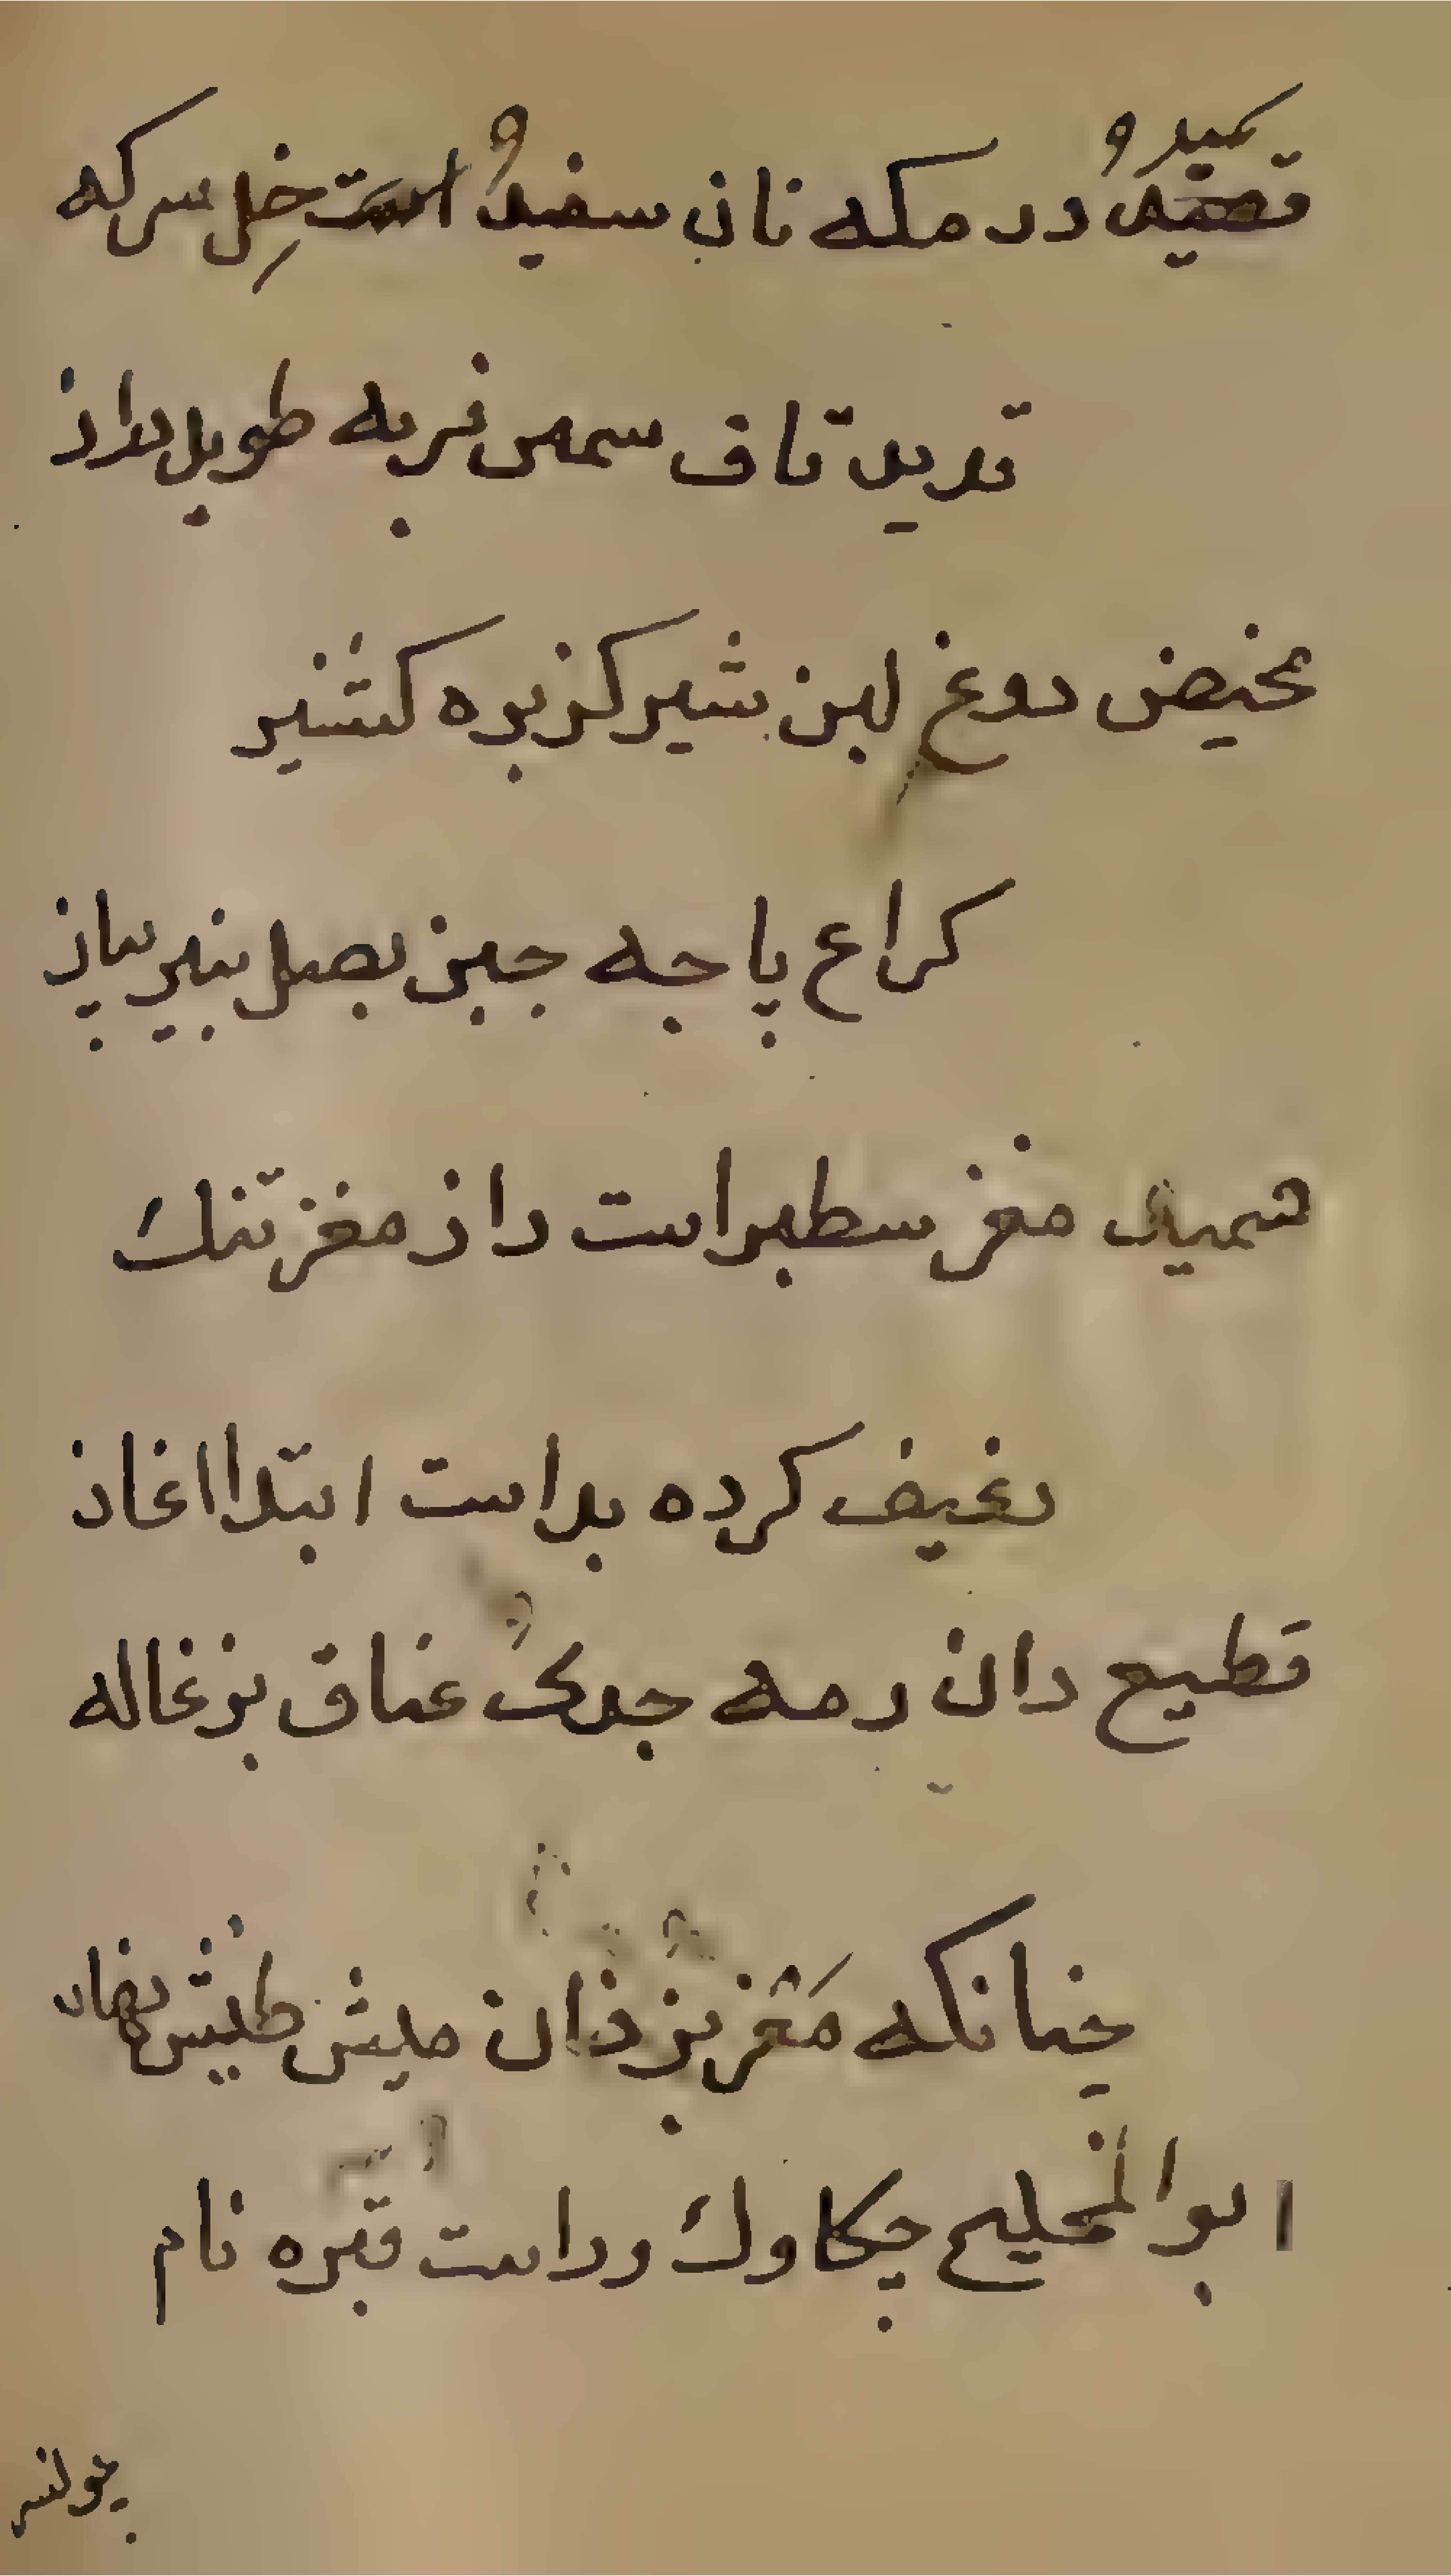 سمید و
قصید و درمکه نان سفید و است خل سرکه
قدید قاف سمین فربه طویل دراز
مخیض دوغ لبن شیر کزبره کشنیز
کراع پاچه جبن بصل پنیر پیاز
سمید مغز سطبر است دان مغز تنک
رغیف کرده بداست ابتدا اغاز
قطیع دان رمه جدی عناق بزغاله
چنانکه مغز بز ذان میش طیش نهاد
ابوالملیح چکاوک وراست قبره نام